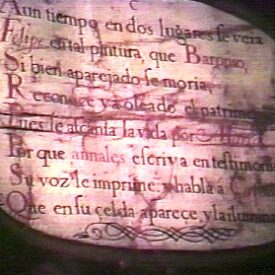 Aun tiempo en dos lugares se veia
Felipe en tal pintura, que
Si bien aparejado se moria,
Reconoce ya oleado, el patrim
le alcansa la vida por
Porque annales escriva en testimon
Su voz le imprime, y habla a
Que en su çelda aparece, y la ilumin